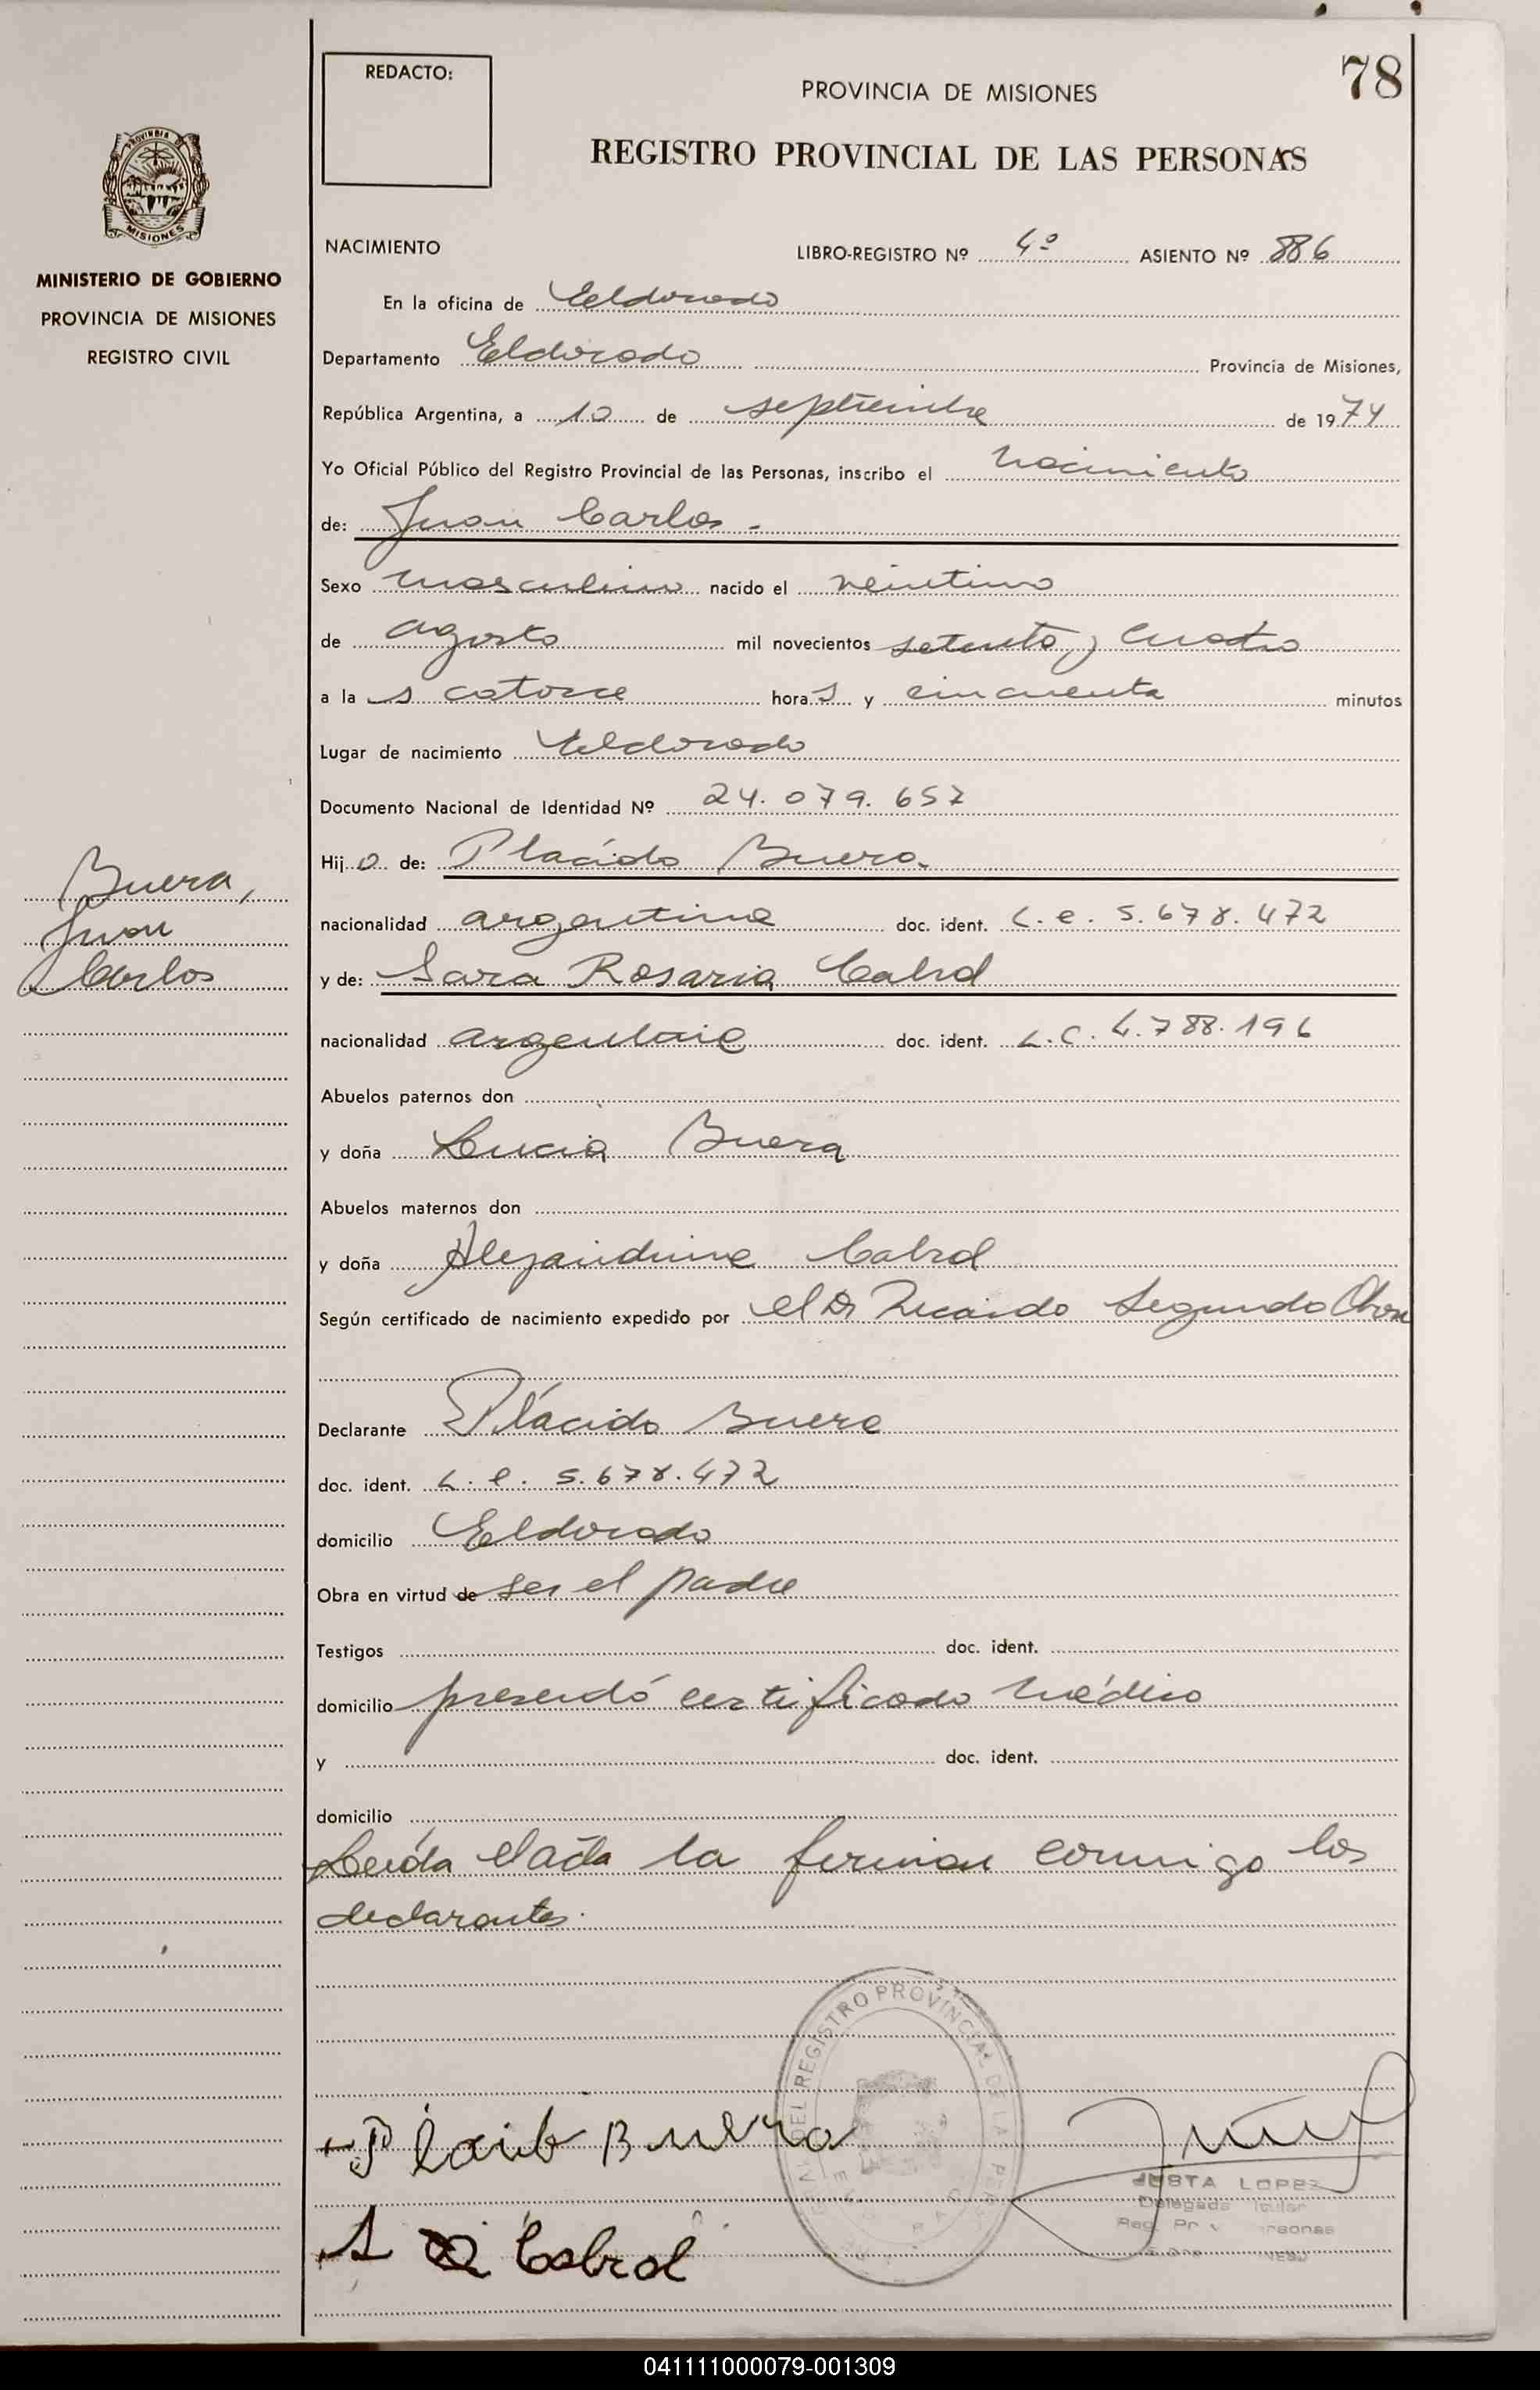 REDACTO:
PROVINCIA DE MISIONES
78
REGISTRO PROVINCIAL DE LAS PERSONAS
PROVINCIA DE
MISIONES
MINISTERIO DE GOBIERNO
PROVINCIA DE MISIONES
REGISTRO CIVIL
NACIMIENTO LIBRO-REGISTRO Nº 4º ASIENTO Nº 886
En la oficina de Eldorado
Departamento Eldorado Provincia de Misiones,
República Argentina, a 10 de septiembre de 1974
Yo Oficial Público del Registro Provincial de las Personas, inscribo el nacimiento
de: Juan Carlos.-
Sexo masculino nacido el veintiuno
de agosto mil novecientos setenta y cuatro
a la s catorce horas y cincuenta minutos
Lugar de nacimiento Eldorado
Documento Nacional de Identidad Nº 24.079.657
Hijo de: Plácido Buera.
Buera,
Juan
Carlos
nacionalidad argentina doc. ident. L.e. 5.678.472
y de: Sara Rosaria Cabral
nacionalidad argentina doc. ident. L.C. 4.788.196
Abuelos paternos don
y doña Lucia Buera
Abuelos maternos don
y doña Alejandrina Cabral
Según certificado de nacimiento expedido por el Dr Ricardo Segundo
Declarante Plácido Buera
doc. ident. L.e. 5.678.472
domicilio Eldorado
Obra en virtud de ser el padre
Testigos doc. ident.
domicilio presentó certificado médico
y doc. ident.
domicilio
Leída el acta la firman conmigo los
declarantes.
REGISTRO PROVINCIAL DE LA
Buera
S Cabral
JUSTA LOPEZ
Delegada Titular
041111000079-001309